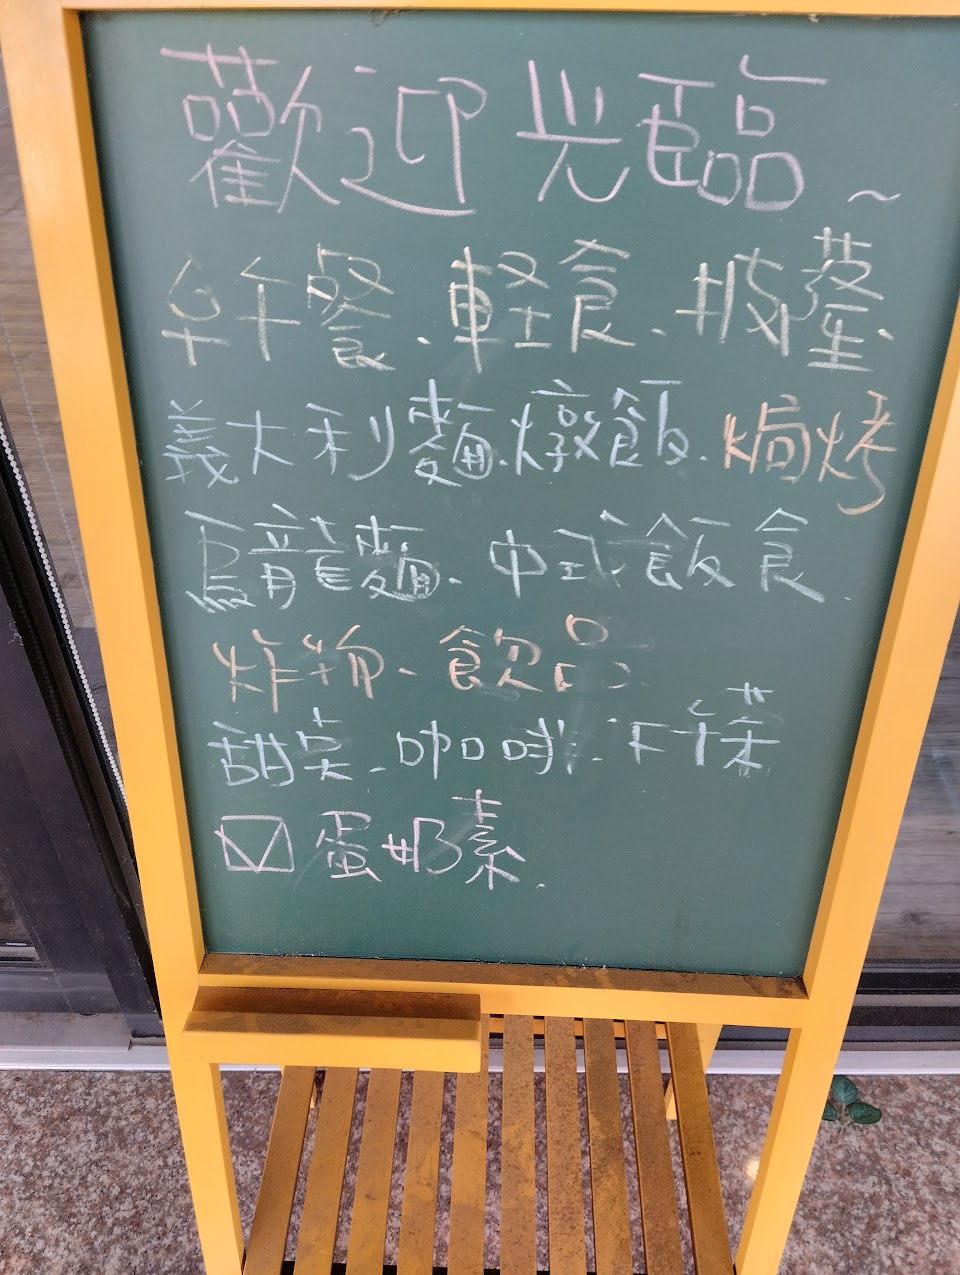 歡迎光臨~
早午餐、輕食、披薩、
義大利麵、燉飯、焗烤
烏龍麵、中式飯食
炸物、飲品、
甜点、咖啡、下午茶
☑ 蛋奶素.